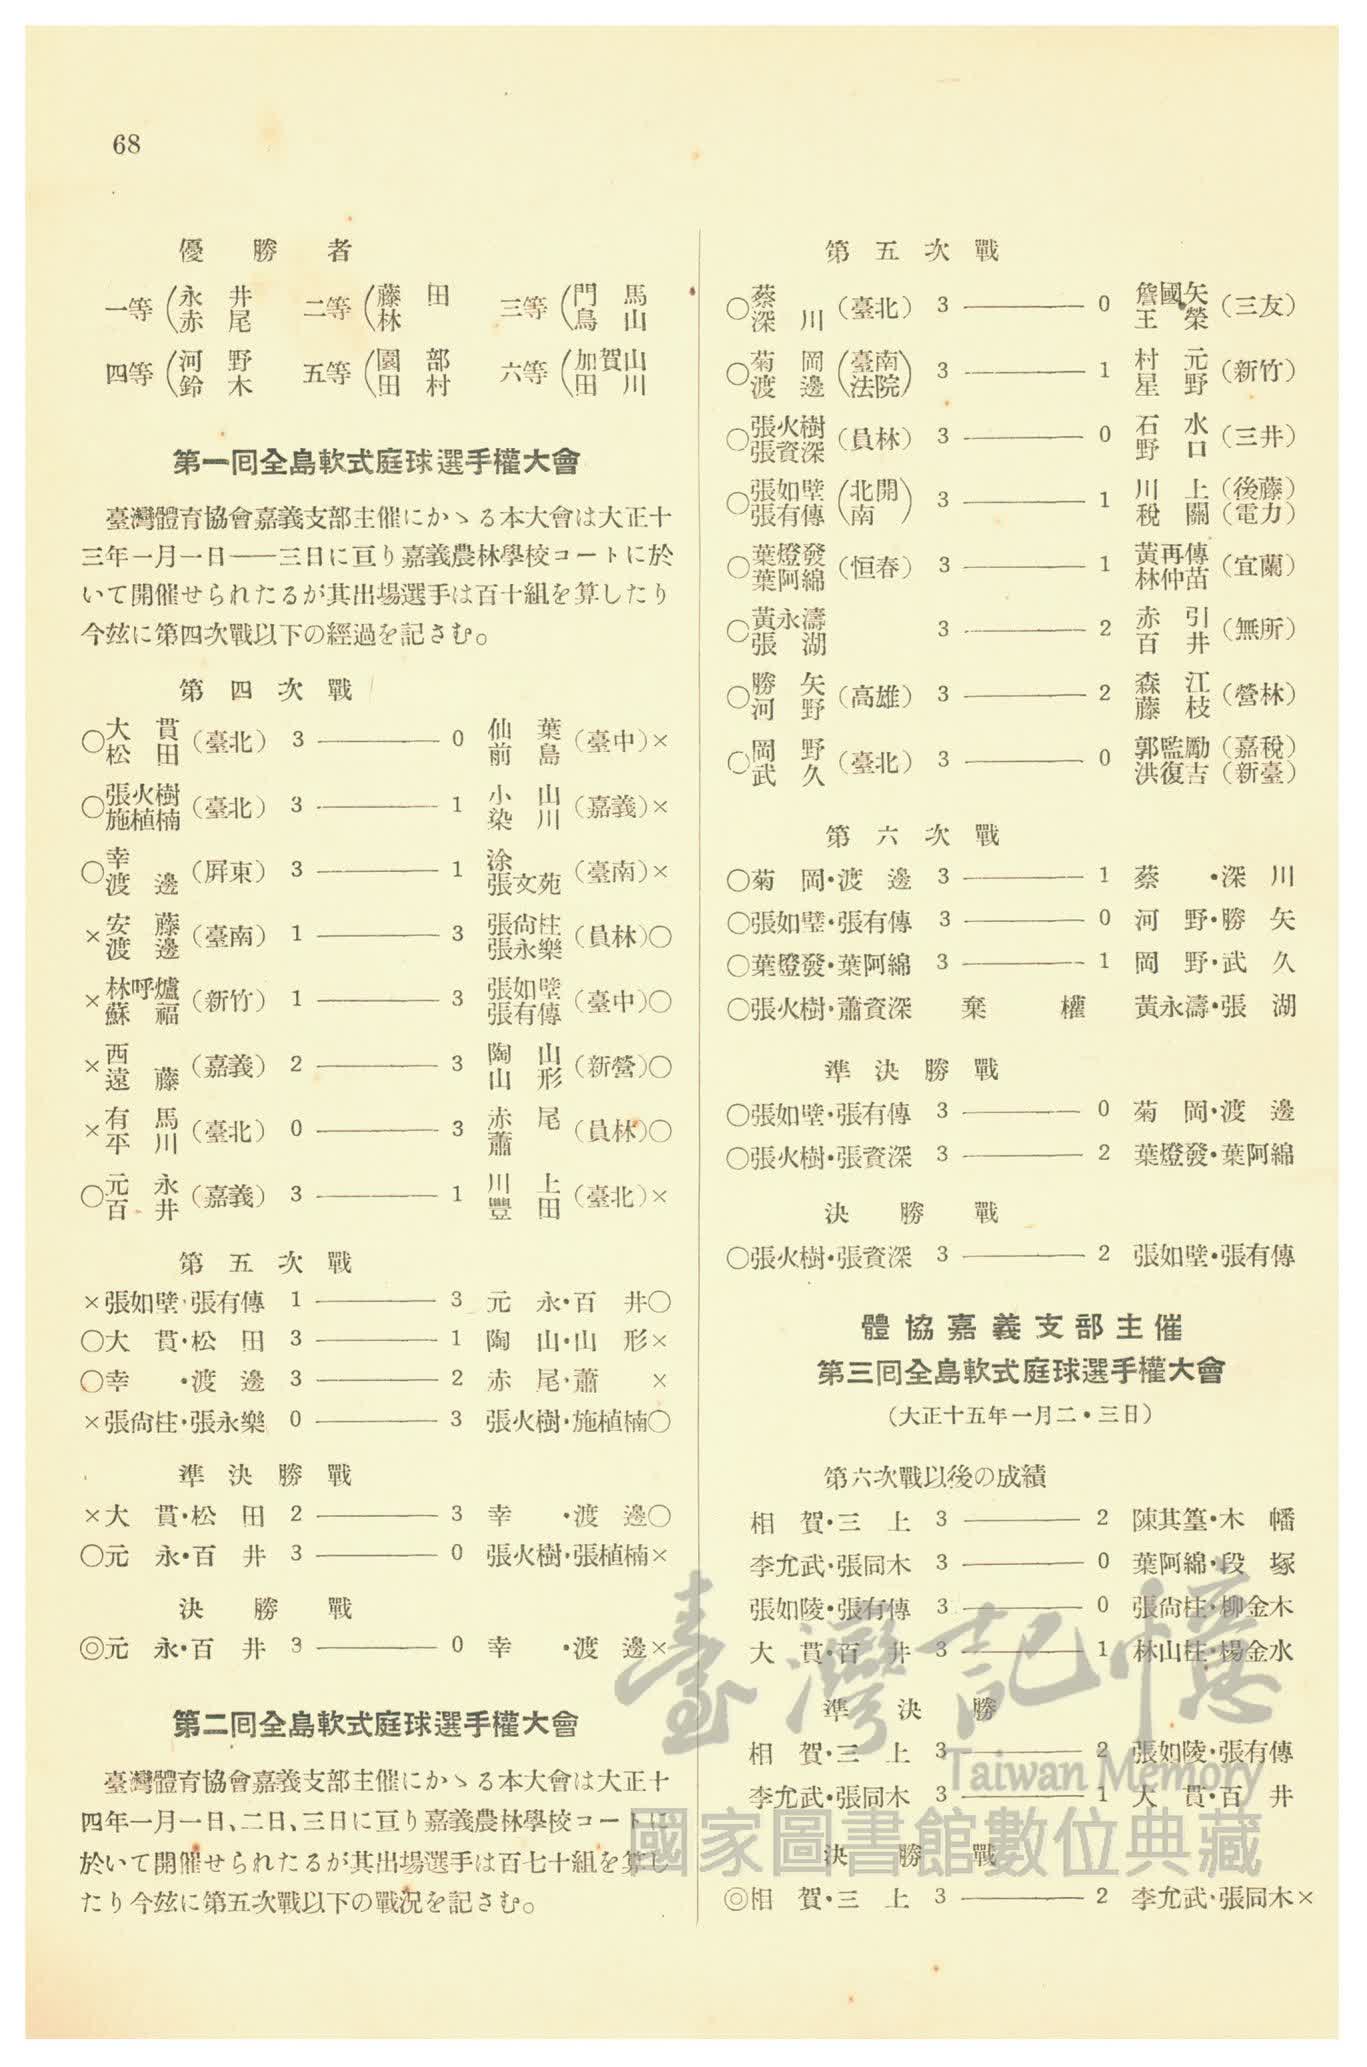 68
優勝者
一等(永井 赤尾 二等(藤田 林 三等(門馬 鳥山
四等(河野 鈴木 五等(園部 田村 六等(加賀山 田川
第一回全島軟式庭球選手權大會
臺灣體育協會嘉義支部主催にかゝる本大會は大正十
三年一月一日——三日に亘り嘉義農林學校コートに於
いて開催せられたるが其出場選手は百十組を算したり
今玆に第四次戰以下の經過を記さむ。
第四次戰
○大貫 松田(臺北) 3 ——— 0 仙葉 前島(臺中)×
○張火樹 施植楠(臺北) 3 ——— 1 小山 染川(嘉義)×
○幸 渡邊(屏東) 3 ——— 1 涂 張文苑(臺南)×
×安藤 渡邊(臺南) 1 ——— 3 張尙柱 張永樂(員林)○
×林呼爐 蘇福(新竹) 1 ——— 3 張如壁 張有傳(臺中)○
×西 遠藤(嘉義) 2 ——— 3 陶山 山形(新營)○
×有馬 平川(臺北) 0 ——— 3 赤尾 蕭(員林)○
○元永 百井(嘉義) 3 ——— 1 川上 豐田(臺北)×
第五次戰
×張如壁·張有傳 1 ——— 3 元永·百井○
○大貫·松田 3 ——— 1 陶山·山形×
○幸·渡邊 3 ——— 2 赤尾·蕭×
×張尙柱·張永樂 0 ——— 3 張火樹·施植楠○
準決勝戰
×大貫·松田 2 ——— 3 幸·渡邊○
○元永·百井 3 ——— 0 張火樹·張植楠×
決勝戰
◎元永·百井 3 ——— 0 幸·渡邊×
第二回全島軟式庭球選手權大會
臺灣體育協會嘉義支部主催にかゝる本大會は大正十
四年一月一日、二日、三日に亘り嘉義農林學校コートに
於いて開催せられたるが其出場選手は百七十組を算し
たり今玆に第五次戰以下の戰況を記さむ。
第五次戰
○蔡 深川(臺北) 3 ——— 0 詹國矢 王榮(三友)
○菊岡 渡邊(臺南法院) 3 ——— 1 村元 星野(新竹)
○張火樹 張資深(員林) 3 ——— 0 石水 野口(三井)
○張如壁 張有傳(北開南) 3 ——— 1 川上(後藤) 稅關(電力)
○葉燈發 葉阿綿(恒春) 3 ——— 1 黃再傳 林仲苗(宜蘭)
○黃永濤 張湖 3 ——— 2 赤引 百井(無所)
○勝矢 河野(高雄) 3 ——— 2 森江 藤枝(營林)
○岡野 武久(臺北) 3 ——— 0 郭監勵(嘉稅) 洪復吉(新臺)
第六次戰
○菊岡·渡邊 3 ——— 1 蔡·深川
○張如璧·張有傳 3 ——— 0 河野·勝矢
○葉燈發·葉阿綿 3 ——— 1 岡野·武久
○張火樹·蕭資深 棄權 黃永濤·張湖
準決勝戰
○張如壁·張有傳 3 ——— 0 菊岡·渡邊
○張火樹·張資深 3 ——— 2 葉燈發·葉阿綿
決勝戰
○張火樹·張資深 3 ——— 2 張如壁·張有傳
體協嘉義支部主催
第三回全島軟式庭球選手權大會
(大正十五年一月二·三日)
第六次戰以後の成績
相賀·三上 3 ——— 2 陳其篁·木幡
李允武·張同木 3 ——— 0 葉阿綿·段塚
張如陵·張有傳 3 ——— 0 張尙柱·柳金木
大貫·百井 3 ——— 1 林山柱·楊金水
準決勝
相賀·三上 3 ——— 2 張如陵·張有傳
李允武·張同木 3 ——— 1 大貫·百井
決勝戰
◎相賀·三上 3 ——— 2 李允武·張同木×
臺灣記憶
Taiwan Memory
國家圖書館數位典藏